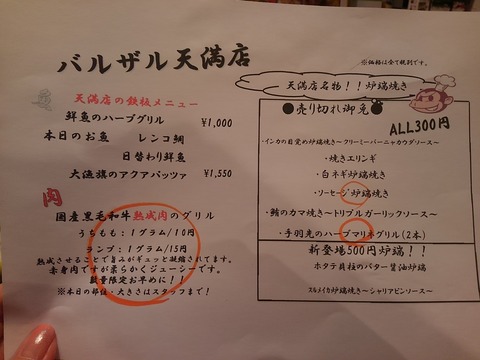 バルザル天満店
※価格は全て税別です。
魚
天満店の鉄板メニュー
鮮魚のハーブグリル ¥1,000
本日のお魚 レンコ鯛
日替わり鮮魚
大漁旗のアクアパッツァ ¥1,550
肉
国産黒毛和牛熟成肉のグリル
うちもも：1グラム/10円
ランプ：1グラム/15円
熟成させることで旨みがギュッと凝縮されてます。
赤身肉ですが柔らかくジューシーです。
数量限定お早めに！！
※本日の部位・大きさはスタッフまで！
天満店名物！！炉端焼き
●売り切れ御免●
ALL300円
・インカの目覚め炉端焼き～クリーミーバーニャカウダソース～
・焼きエリンギ
・白ネギ炉端焼き
・ソーセージ炉端焼き
・鰤のカマ焼き～トリプルガーリックソース～
・手羽先のハーブマリネグリル(2本)
新登場500円炉端！！
ホタテ貝柱のバター醤油炉端
スルメイカ炉端焼き～シャリアピンソース～